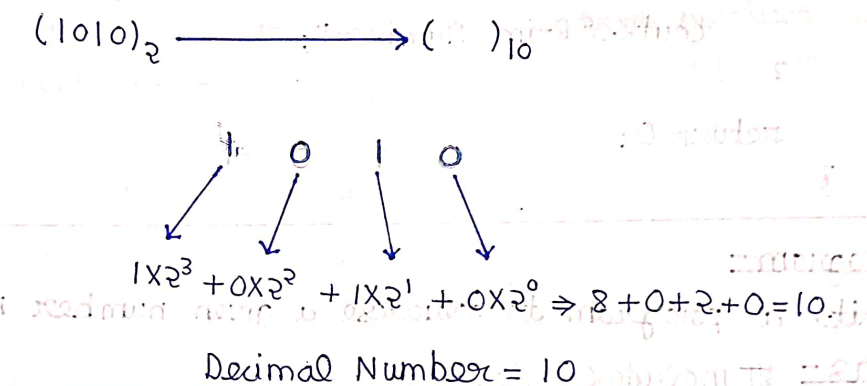 (1010)₂ ⟶ ( )₁₀
1 0 1 0
1×2³ + 0×2² + 1×2¹ + 0×2⁰ ⇒ 8+0+2+0=10.
Decimal Number = 10